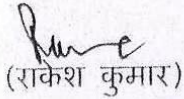 (राकेश कुमार)